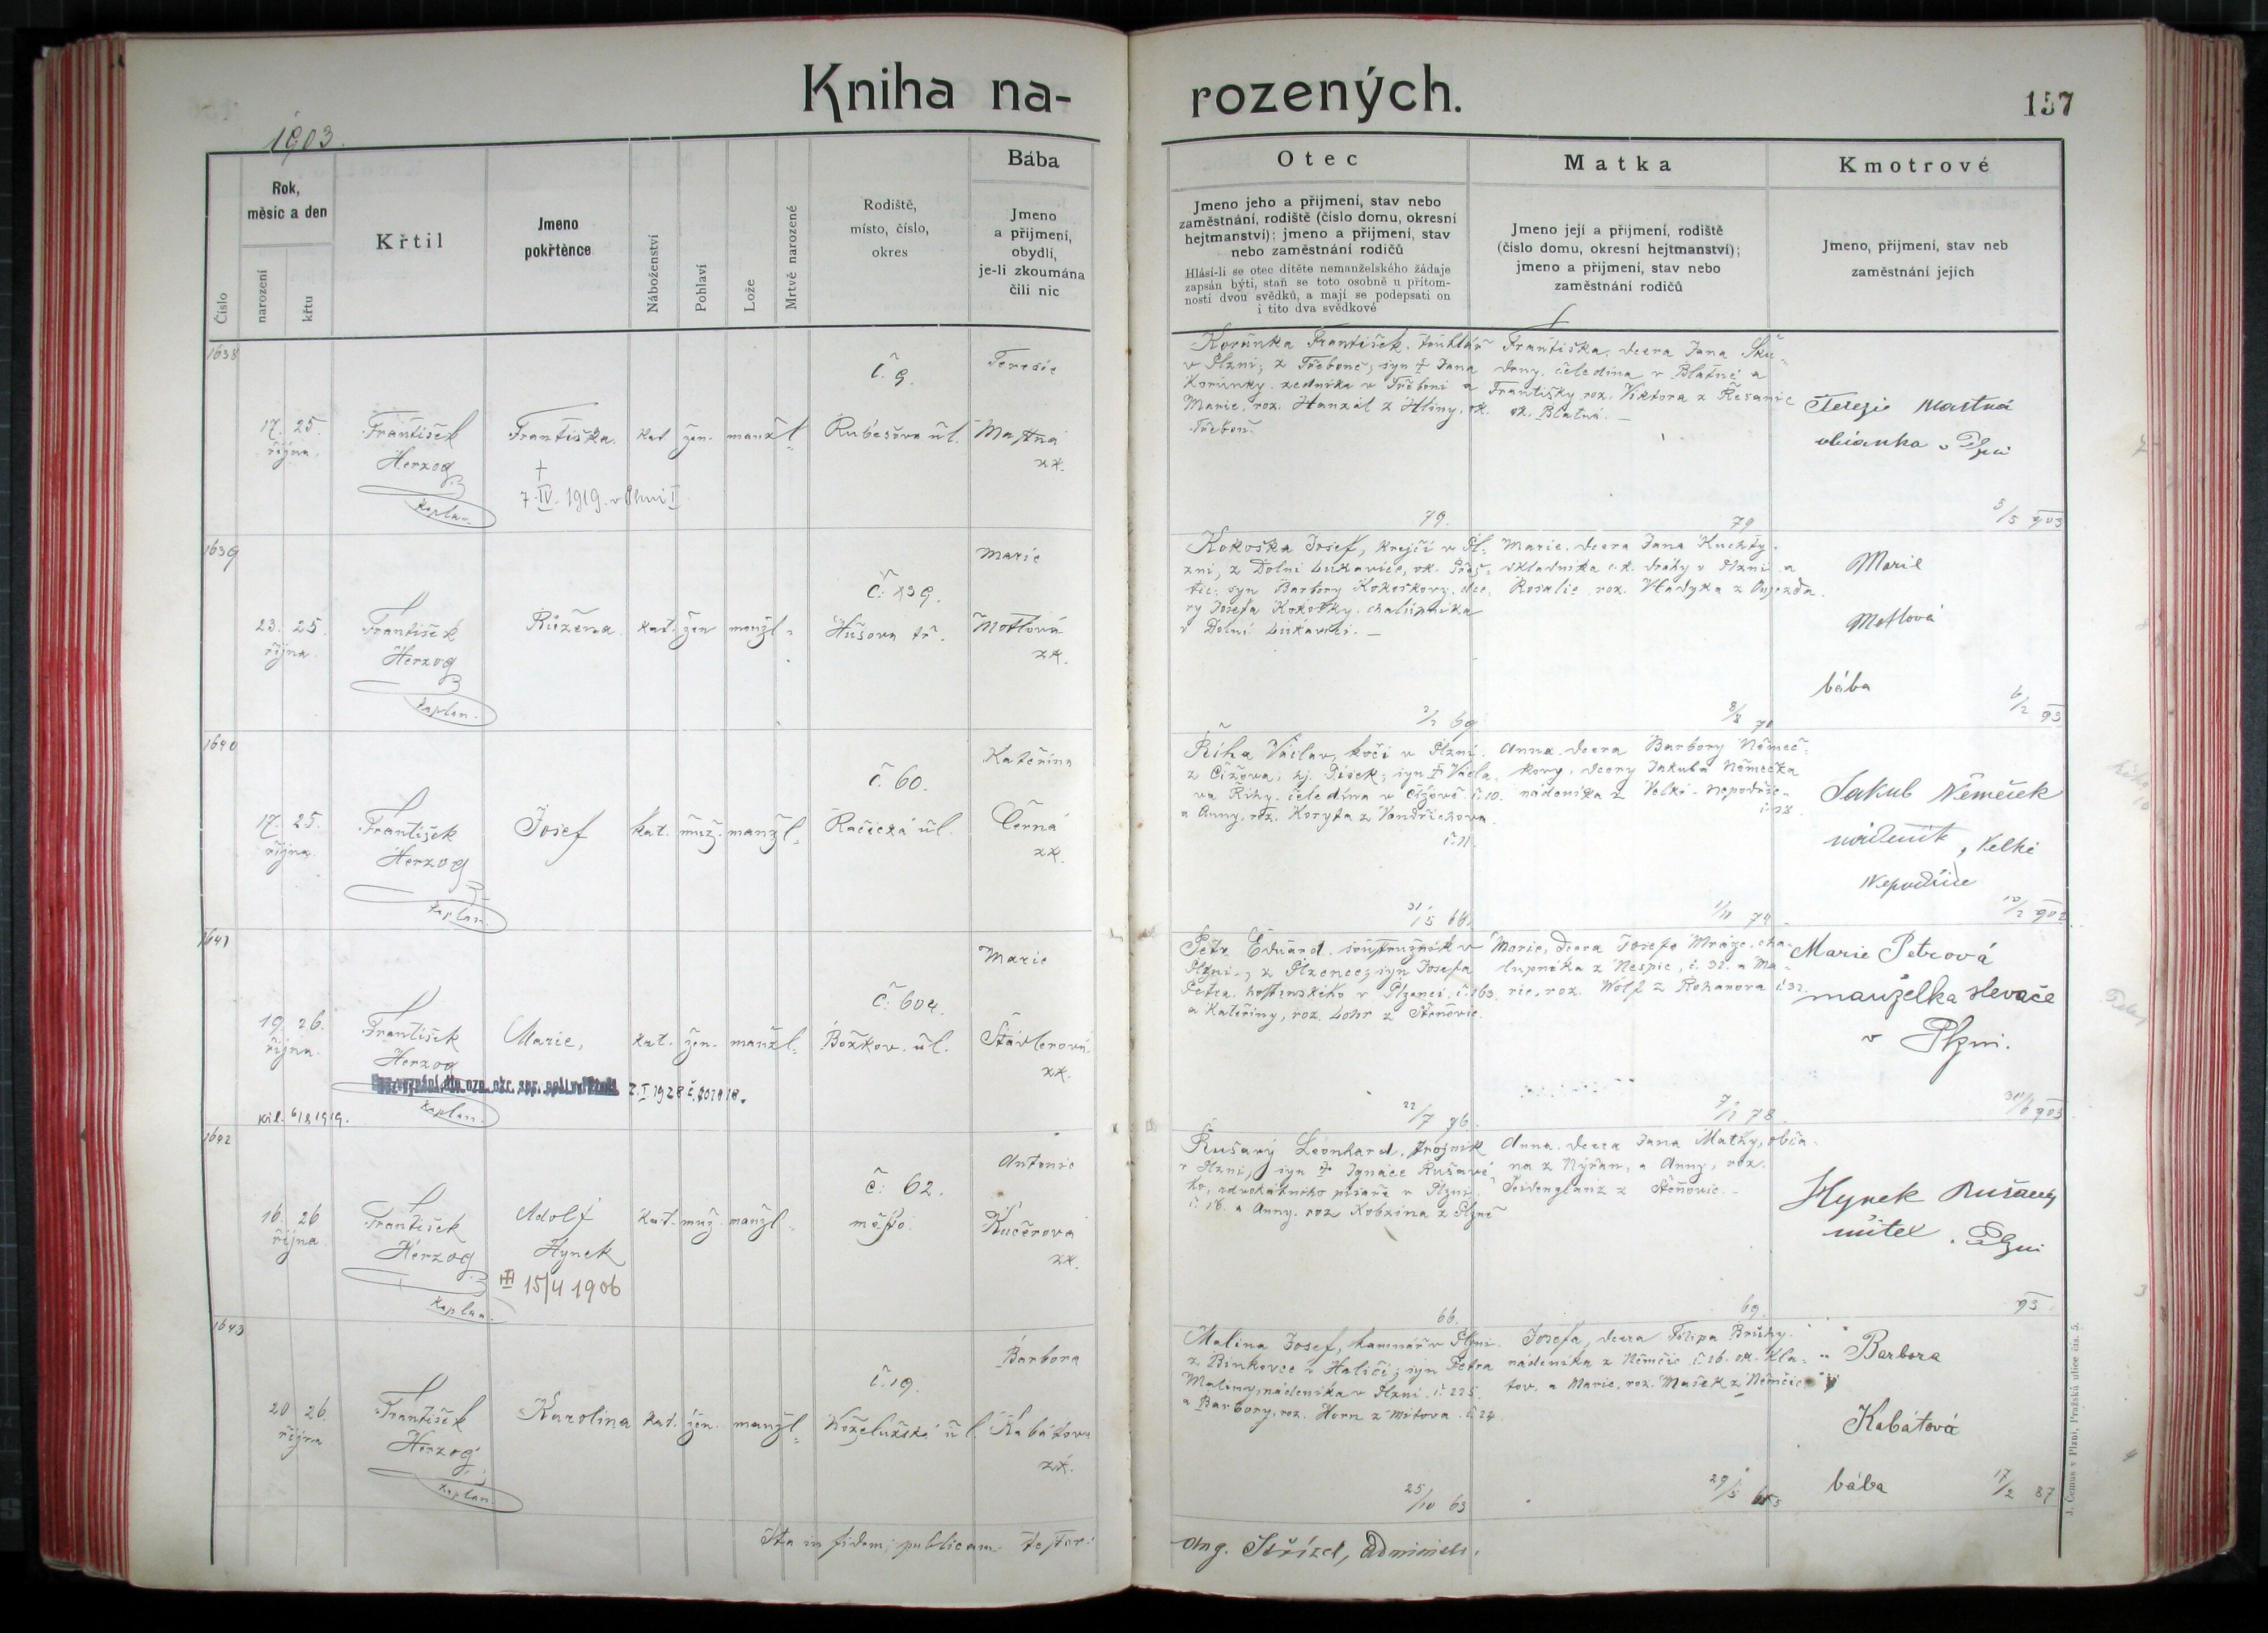 Kniha na-
rozených.
157
1903.
Číslo
Rok,
měsíc a den
narození
křtu
Křtil
Jmeno
pokřtěnce
Náboženství
Pohlaví
Lože
Mrtvě narozené
Rodiště,
místo, číslo,
okres
Bába
Jmeno
a přijmení,
obydlí,
je-li zkoumána
čili nic
Otec
Jmeno jeho a přijmení, stav nebo
zaměstnání, rodiště (číslo domu, okresní
hejtmanství); jmeno a přijmení, stav
nebo zaměstnání rodičů
Hlásí-li se otec dítěte nemanželského žádaje
zapsán býti, staň se toto osobně u přítom-
nosti dvou svědků, a mají se podepsati on
i tito dva svědkové
Matka
Jmeno její a přijmení, rodiště
(číslo domu, okresní hejtmanství);
jmeno a přijmení, stav nebo
zaměstnání rodičů
Kmotrové
Jmeno, přijmení, stav neb
zaměstnání jejich
1638
17. 25.
října.
František
Herzog
kaplan.
Františka.
†
7. IV. 1919. v Plzni I
kat žen. manžl.
č. 9.
Rubešova ul.
Terezie
Mastná
zk.
Korunka František, truhlář
v Plzni, z Třeboně, syn † Jana
Korunky, zedníka v Třeboni a
Marie, roz. Hanzal z Hliny, ok.
Třeboň.
79.
Františka, dcera Jana Sku-
drny, čeledína v Blatné a
Františky roz. Viktora z Řesanic
ok. Blatná. —
79
Terezie Mastná
občanka v Plzni
5/5 903
1639
23. 25.
října.
František
Herzog
kaplan.
Růžena.
kat. žen manžl.
č. 139.
Husova tř.
Marie
Motlová
zk.
Kokoška Josef, krejčí v Pl-
zni, z Dolní Lukavice, ok. Přeš-
tic, syn Barbory Kokoškovy, dce-
ry Josefa Kokošky, chalupníka
v Dolní Lukavici. —
2/2 69
Marie, dcera Jana Kuchty,
skladníka c. k. dráhy v Plzni a
Rosalie, roz. Vladyka z Oujezda.
8/8 70
Marie
Motlová
bába
6/2 93
1640
17. 25.
října.
František
Herzog
kaplan.
Josef
kat. muž. manžl.
č. 60.
Račická ul.
Kateřina
Černá
zk.
Říha Václav, kočí v Plzni,
z Čížova, hj. Písek, syn † Václa-
va Říhy, čeledína v Čížově č. 10.
a Anny, roz. Koryta z Vondřichova
č. 11.
31/5 66.
Anna, dcera Barbory Němeč-
kovy, dcery Jakuba Němečka
nádeníka z Velké-Nepodřic-
1/11 74
Jakub Němeček
nádeník, Velké
Nepodřice
10/2 902
1641
19. 26.
října.
František
Herzog
kaplan.
Marie,
kat. žen. manžl.
2. I 1928
č. 604.
Božkov. ul.
Marie
Štávlerová
zk.
Petr Eduard, soustružník v
Plzni, z Plzence, syn Josefa
Petra, hostinského v Plzenci, č. 163.
a Kateřiny, roz. Lohr z Štěnovic.
22/7 76.
Marie, dcera Josefa Mráze, cha-
lupníka z Nespic, č. 32. a Ma-
rie, roz. Wolf z Rohanova č. 32.
7/7 78
Marie Petrová
manželka slevače
v Plzni.
31/6 903
1642
16. 26
října
František
Herzog
kaplan.
Adolf
Hynek
15/4 1906
kat. muž. manžl.
č. 62.
město.
Antonie
Kučerova
zk.
Rušavý Leonhard, strojník
v Plzni, syn † Ignáce Rušavé-
ho, advokátního písaře v Plzni
č. 16. a Anny, roz Kobzina z Plzně
66.
Anna, dcera Jana Mathy, obča-
na z Nýřan, a Anny, roz.
Seidenglanz z Štěnovic. —
69.
Hynek Rušavý
učitel v Plzni
93
1643
20 26.
října
František
Herzog
kaplan.
Karolina
kat. žen. manžl.
č. 19.
Koželužská ul.
Barbora
Kabátova
zk.
Malina Josef, kamnář v Plzni
z Binkovce v Haliči, syn Petra
Maliny, nádeníka v Plzni č. 225.
a Barbory, roz. Horn z Mitova č. 24.
25/10 63
Josefa, dcera Filipa Bruhy,
nádeníka z Němčic č. 16. ok. Kla-
tov. a Marie, roz. Mašek z Němčic
29/5
Barbora
Kabátová
bába
17/2 87
Ita in fidem publicam testor:
Aug. Střízel, administr.
J. Čemus v Plzni, Pražská ulice čís. 5.